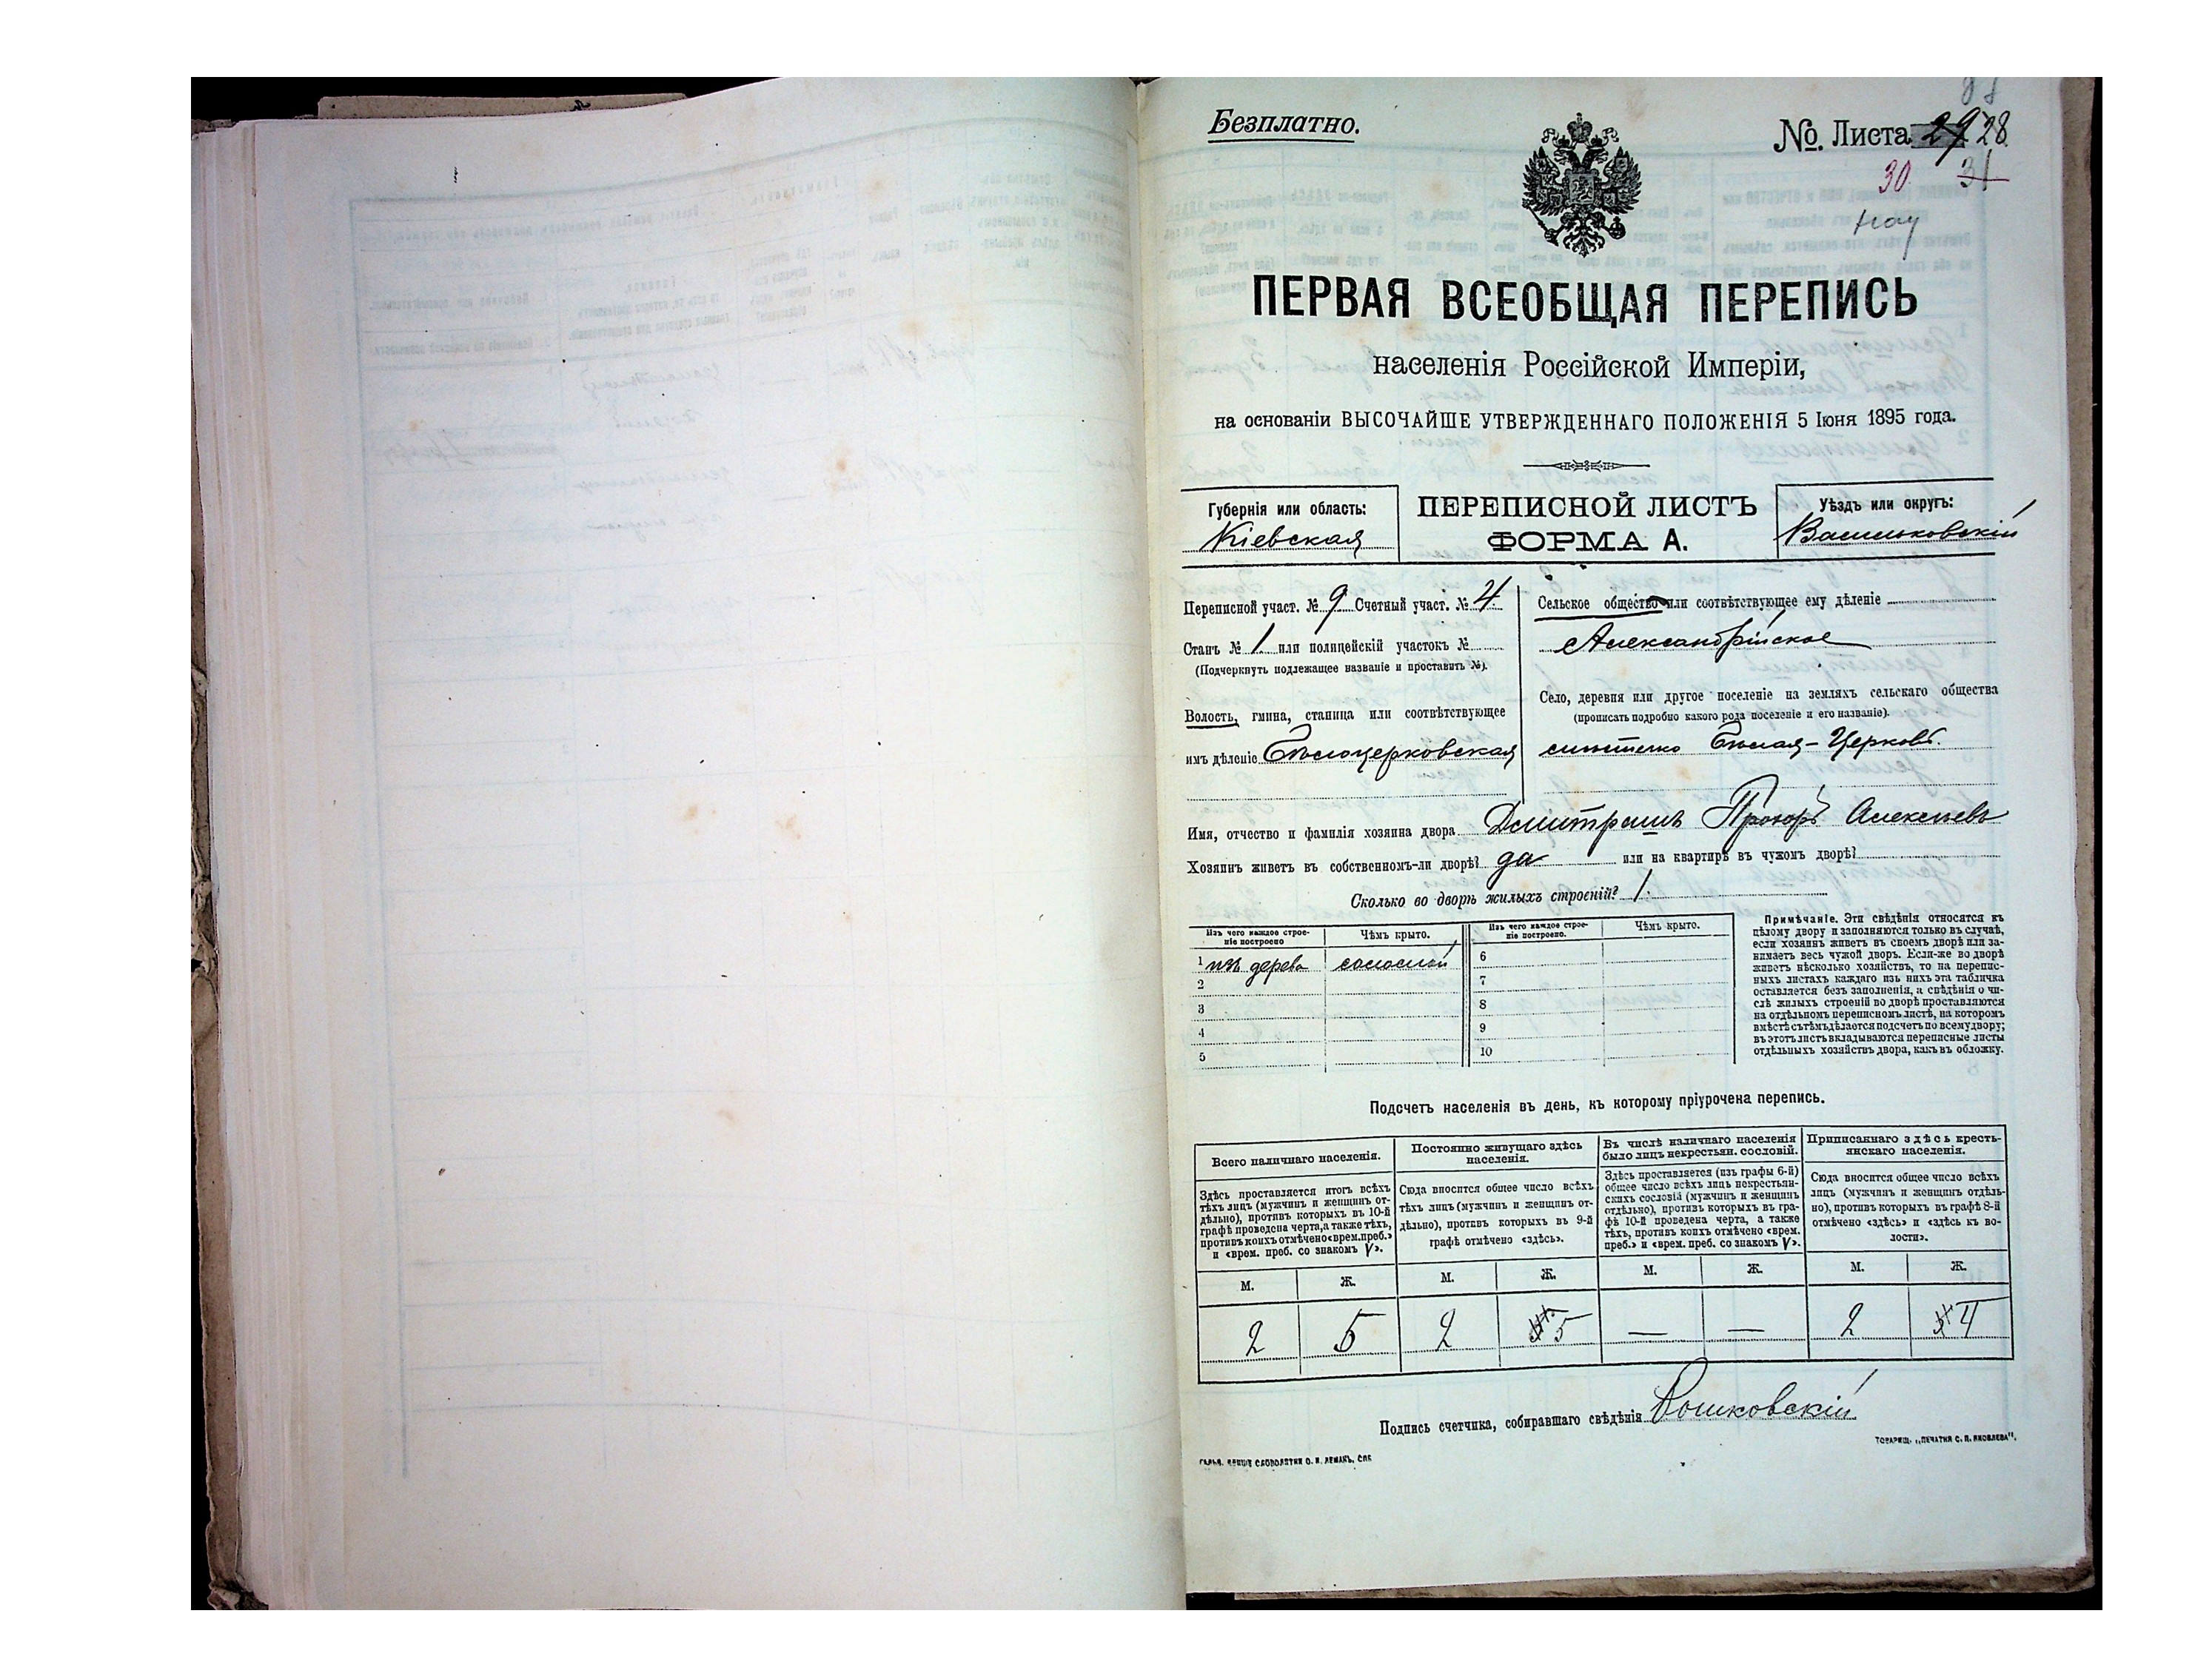 Безплатно.
№. Листа 29 28.
30 31
ПЕРВАЯ ВСЕОБЩАЯ ПЕРЕПИСЬ
населенія Россійской Имперіи,
на основаніи ВЫСОЧАЙШЕ УТВЕРЖДЕННАГО ПОЛОЖЕНІЯ 5 Іюня 1895 года.
Губернія или область:
Кіевская
ПЕРЕПИСНОЙ ЛИСТЪ
ФОРМА А.
Уѣздъ или округъ:
Васильковскій
Переписной участ. № 9 Счетный участ. № 4.
Станъ № 1 или полицейскій участокъ №
(Подчеркнуть подлежащее названіе и проставить №).
Волость, гмина, станица или соотвѣтствующее
имъ дѣленіе Бѣлоцерковская
Сельское общество или соотвѣтствующее ему дѣленіе
Александрійское
Село, деревня или другое поселеніе на земляхъ сельскаго общества
(прописать подробно какого рода поселеніе и его названіе).
мѣстечко Бѣлая-Церковь.
Имя, отчество и фамилія хозяина двора Дмитрашъ Прохоръ Алексѣевъ
Хозяинъ живетъ въ собственномъ-ли дворѣ? да или на квартирѣ въ чужомъ дворѣ?
Сколько во дворѣ жилыхъ строеній? 1.
Изъ чего каждое строе-
ніе построено
Чѣмъ крыто.
Изъ чего каждое строе-
ніе построено.
Чѣмъ крыто.
1 изъ дерева соломой
2
3
4
5
6
7
8
9
10
Примѣчаніе. Эти свѣдѣнія относятся къ
цѣлому двору и заполняются только въ случаѣ,
если хозяинъ живетъ въ своемъ дворѣ или за-
нимаетъ весь чужой дворъ. Если-же во дворѣ
живетъ нѣсколько хозяйствъ, то на перепис-
ныхъ листахъ каждаго изъ нихъ эта табличка
оставляется безъ заполненія, а свѣдѣнія о чи-
слѣ жилыхъ строеній во дворѣ проставляются
на отдѣльномъ переписномъ листѣ, на которомъ
вмѣстѣ съ тѣмъ дѣлается подсчетъ по всему двору;
въ этотъ листъ вкладываются переписные листы
отдѣльныхъ хозяйствъ двора, какъ въ обложку.
Подсчетъ населенія въ день, къ которому пріурочена перепись.
Всего наличнаго населенія.
Здѣсь проставляется итогъ всѣхъ
тѣхъ лицъ (мужчинъ и женщинъ от-
дѣльно), противъ которыхъ въ 10-й
графѣ проведена черта, а также тѣхъ,
противъ коихъ отмѣчено «врем. преб.»
и «врем. преб. со знакомъ V».
Постоянно живущаго здѣсь
населенія.
Сюда вносится общее число всѣхъ
тѣхъ лицъ (мужчинъ и женщинъ от-
дѣльно), противъ которыхъ въ 9-й
графѣ отмѣчено «здѣсь».
Въ числѣ наличнаго населенія
было лицъ некрестьян. сословій.
Здѣсь проставляется (изъ графы 6-й)
общее число всѣхъ лицъ некрестьян-
скихъ сословій (мужчинъ и женщинъ
отдѣльно), противъ которыхъ въ гра-
фѣ 10-й проведена черта, а также
тѣхъ, противъ коихъ отмѣчено «врем.
преб.» и «врем. преб. со знакомъ V».
Приписаннаго здѣсь кресть-
янскаго населенія.
Сюда вносится общее число всѣхъ
лицъ (мужчинъ и женщинъ отдѣль-
но), противъ которыхъ въ графѣ 8-й
отмѣчено «здѣсь» и «здѣсь къ во-
лости».
М. Ж. М. Ж. М. Ж. М. Ж.
2 5 2 5 — — 2 4
Подпись счетчика, собиравшаго свѣдѣнія
ТОВАРИЩ. „ПЕЧАТНЯ С. П. ЯКОВЛЕВА".